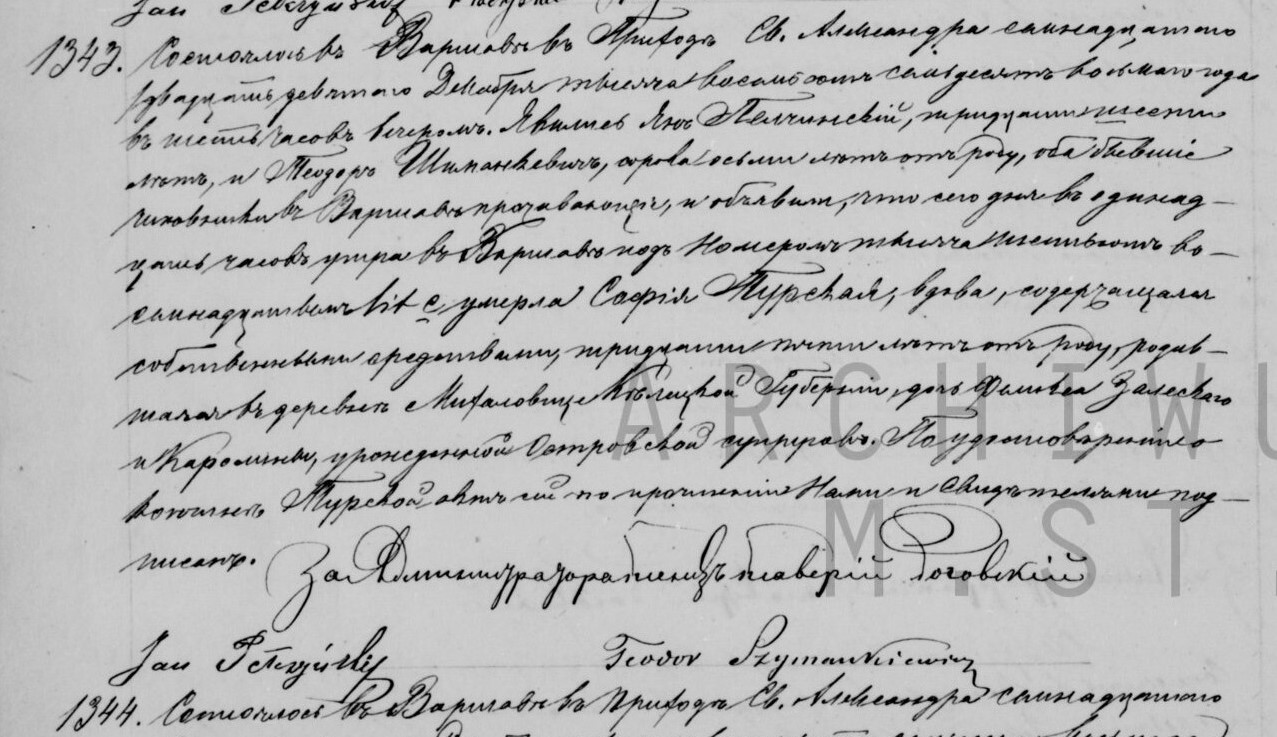 Jan
1343. Состоялось въ Варшавѣ въ Приходѣ Св. Александра семнадцатаго
/двадцать девятаго Декабря тысяча восемьсотъ семьдесятъ восьмаго года
въ шесть часовъ вечеромъ. Явились Янъ Пелчинскій, тридцати шести
лѣтъ, и Теодоръ Шиманкевичъ, сорока осьми лѣтъ отъ роду, оба бывшіе
чиновники въ Варшавѣ проживающіе, и объявили, что сего дня въ одинад-
цать часовъ утра въ Варшавѣ подъ Номеромъ тысяча шестьсотъ во-
семнадцатымъ lit c, умерла Софія Турская, вдова, содержащаяся
собственными средствами, тридцати пяти лѣтъ отъ роду, родив-
шаяся въ деревнѣ Михаловице Кѣлецкой Губерніи, дочь Фаддея Залескаго
и Каролины, урожденной Островской супруговъ. По удостовѣреніи о
кончинѣ Турской актъ сей по прочтеніи Нами и Свидѣтелями под-
писанъ.
За Администратора Ксендзъ Ксаверій Роговскій
Jan Teodor Szymankiewicz
1344. Состоялось въ Варшавѣ въ Приходѣ Св. Александра семнадцатаго
ARCHIWU
M ST